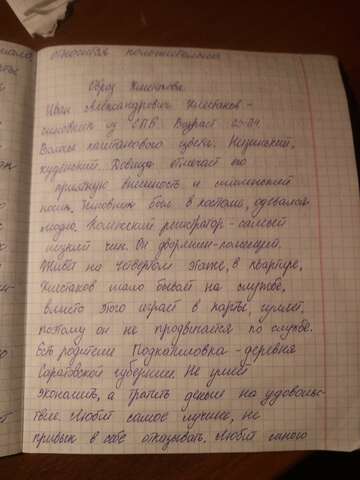 относится положительно
Образ Хлестакова
Иван Александрович Хлестаков -
чиновник из СПБ. Возраст 23-24
Волосы каштанового цвета. Низенький,
худенький. Девицы отмечает его
приятную внешность и маленький
носик. Чиновник был в костюме, одевался
модно. Коллежский регистратор - самый
низкий чин. Он дворянин-помещик.
Живёт на четвёртом этаже, в квартире,
Хлестаков мало бывает на службе,
вместо этого играет в карты, гуляет,
поэтому он не продвигается по службе.
Есть родители Подкатиловка - деревня
Саратовской губернии. Не умеет
экономить, а тратить деньги на удовольс-
твие. Любит самое лучшее, не
привык в себе отказывать. Любит много